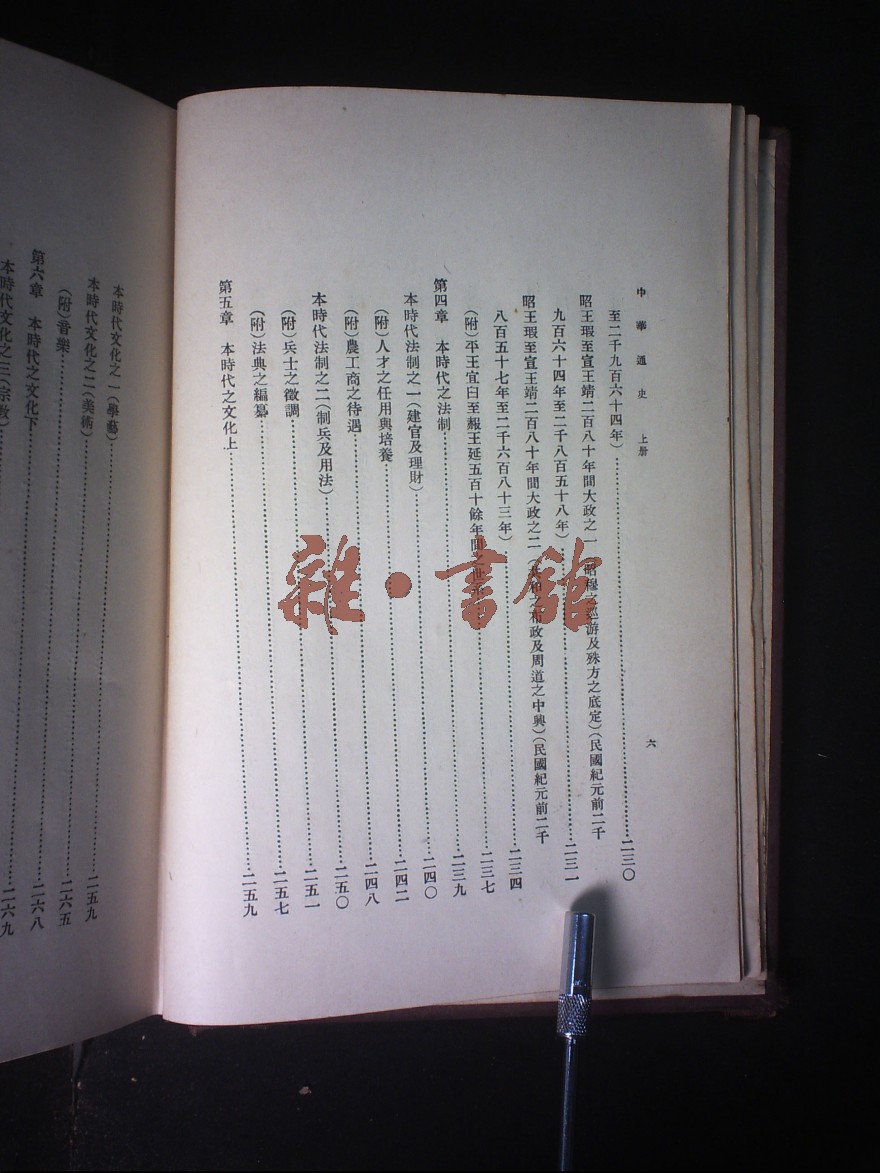 中華通史 上册
六
至二千九百六十四年)……二三〇
昭王瑕至宣王靖二百八十年間大政之一(昭穆之巡游及殊方之底定)(民國紀元前二千
九百六十四年至二千八百五十八年)……二三一
昭王瑕至宣王靖二百八十年間大政之二(共和之布政及周道之中興)(民國紀元前二千
八百五十七年至二千六百八十三年)……二三四
(附)平王宜臼至赧王延五百十餘年間之世……二三七
第四章 本時代之法制……二三九
本時代法制之一(建官及理財)……二四〇
(附)人才之任用與培養……二四二
(附)農工商之待遇……二四八
本時代法制之二(制兵及用法)……二五〇
(附)兵士之徵調……二五一
(附)法典之編纂……二五七
第五章 本時代之文化上……二五九
本時代文化之一(學藝)……二五九
本時代文化之二(美術)……二六五
(附)音樂……二六八
第六章 本時代之文化下……二六九
本時代文化之三(宗教)
雜·書館